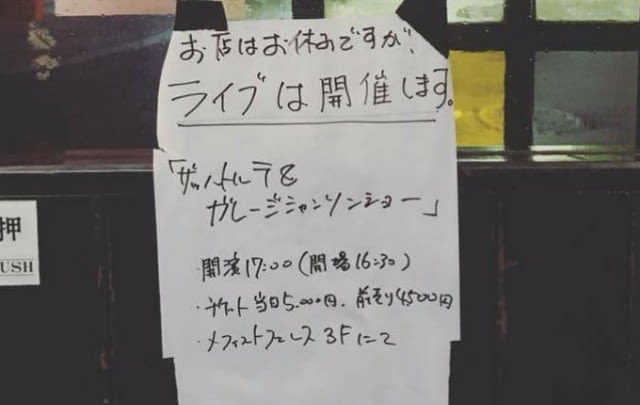 お店はお休みですが、
ライブは開催します。
ガレージシャンソンショー」
・開演17:00(開場16:30)
・チケット当日5.000円、前売り4500円
・メフィストフェレス3Fにて
押
USH